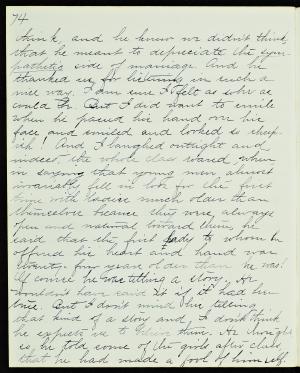 74
think, and he knew we didn't think,
that he meant to depreciate the sym-
pathetic side of marriage. And he
thanked us for listening in such a
nice way. I am sure I felt as sober as
could be. But I did want to smile
when he passed his hand over his
face and smiled and looked so sheep-
ish! And I laughed outright and
indeed, the whole class roared, when
in saying that young men almost
invariably fell in love for the first
time with ladies much older than
themselves because they were always
free and natural toward them, he
said that the first lady to whom he
offered his heart and hand was
twenty-four years older than he was!
Of course he was telling a story. He
wouldn't have said it if it had been
true. But I don't mind his telling
that kind of a story and I don't think
he expects us to believe them. He thought
so, he told some of the girls after class,
that he had made a fool of himself